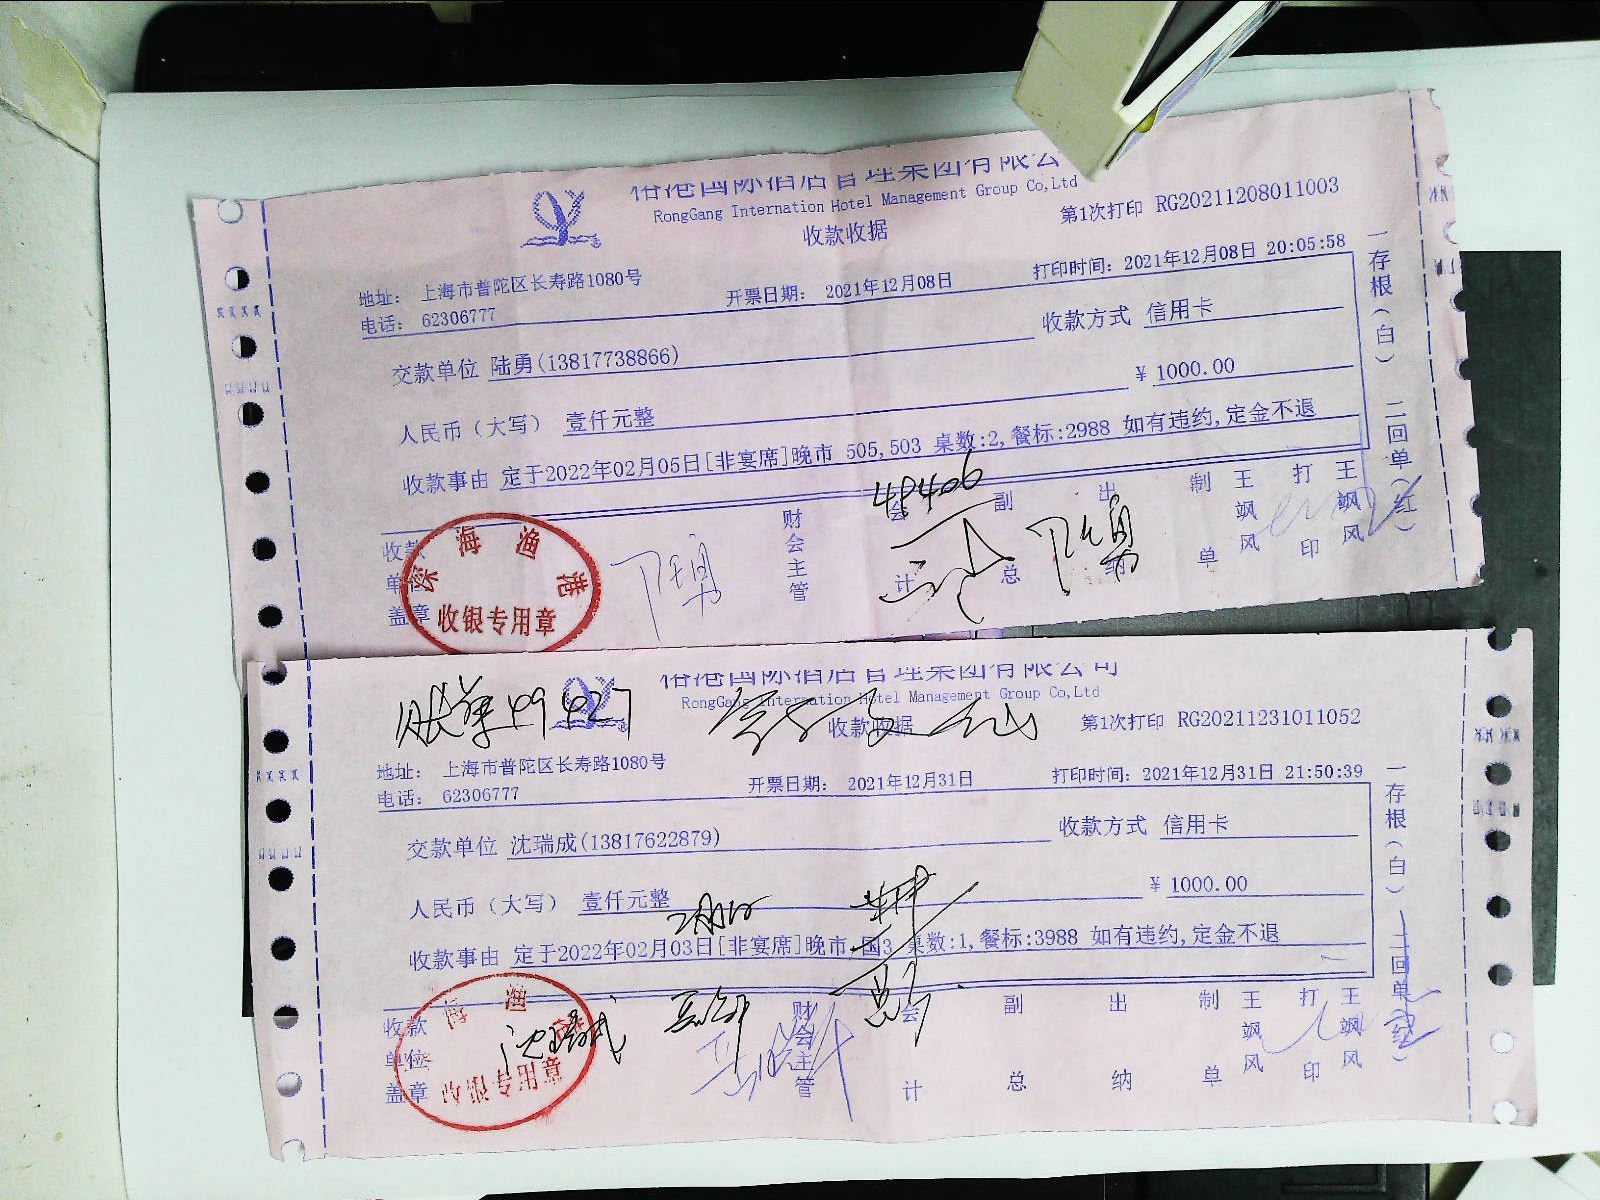 RongGang Internation Hotel Management Group Co,Ltd
收款收据
第1次打印 RG20211208011003
地址： 上海市普陀区长寿路1080号
电话： 62306777
开票日期： 2021年12月08日
打印时间：2021年12月08日 20:05:58
交款单位 陆勇(13817738866)
收款方式 信用卡
人民币（大写） 壹仟元整
¥ 1000.00
收款事由 定于2022年02月05日[非宴席]晚市 505,503 桌数:2,餐标:2988 如有违约,定金不退
一存根(白) 二回单(红)
48406
收款单位盖章
财会主管
会计
副总
出纳
制单
王飒风
打印
王飒风
深海渔港
收银专用章
国际酒店管理集团有限公司
RongGang Internation Hotel Management Group Co,Ltd
收款收据
第1次打印 RG20211231011052
地址： 上海市普陀区长寿路1080号
电话： 62306777
开票日期： 2021年12月31日
打印时间：2021年12月31日 21:50:39
交款单位 沈瑞成(13817622879)
收款方式 信用卡
人民币（大写） 壹仟元整
¥ 1000.00
收款事由 定于2022年02月03日[非宴席]晚市,国3 桌数:1,餐标:3988 如有违约,定金不退
一存根(白) 二回单(红)
收款单位盖章
沈瑞成
财会主管
会计
副总
出纳
制单
王飒风
打印
王飒风